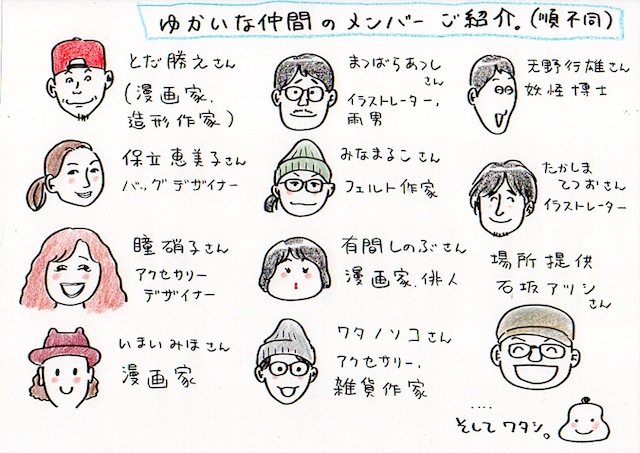 ゆかいな仲間のメンバーご紹介。(順不同)
とだ勝之さん
(漫画家.
造形作家)
まつばらあつし
さん
イラストレーター,
雨男
天野行雄さん
妖怪博士
保立恵美子さん
バッグデザイナー
みなまるこさん
フェルト作家
たかしま
てつおさん
イラストレーター
瞳硝子さん
アクセサリー
デザイナー
有間しのぶさん
漫画家.俳人
場所提供
石坂アツシ
さん
いまいみほさん
漫画家
ワタノソコさん
アクセサリー,
雑貨作家
....
そしてワタシ。